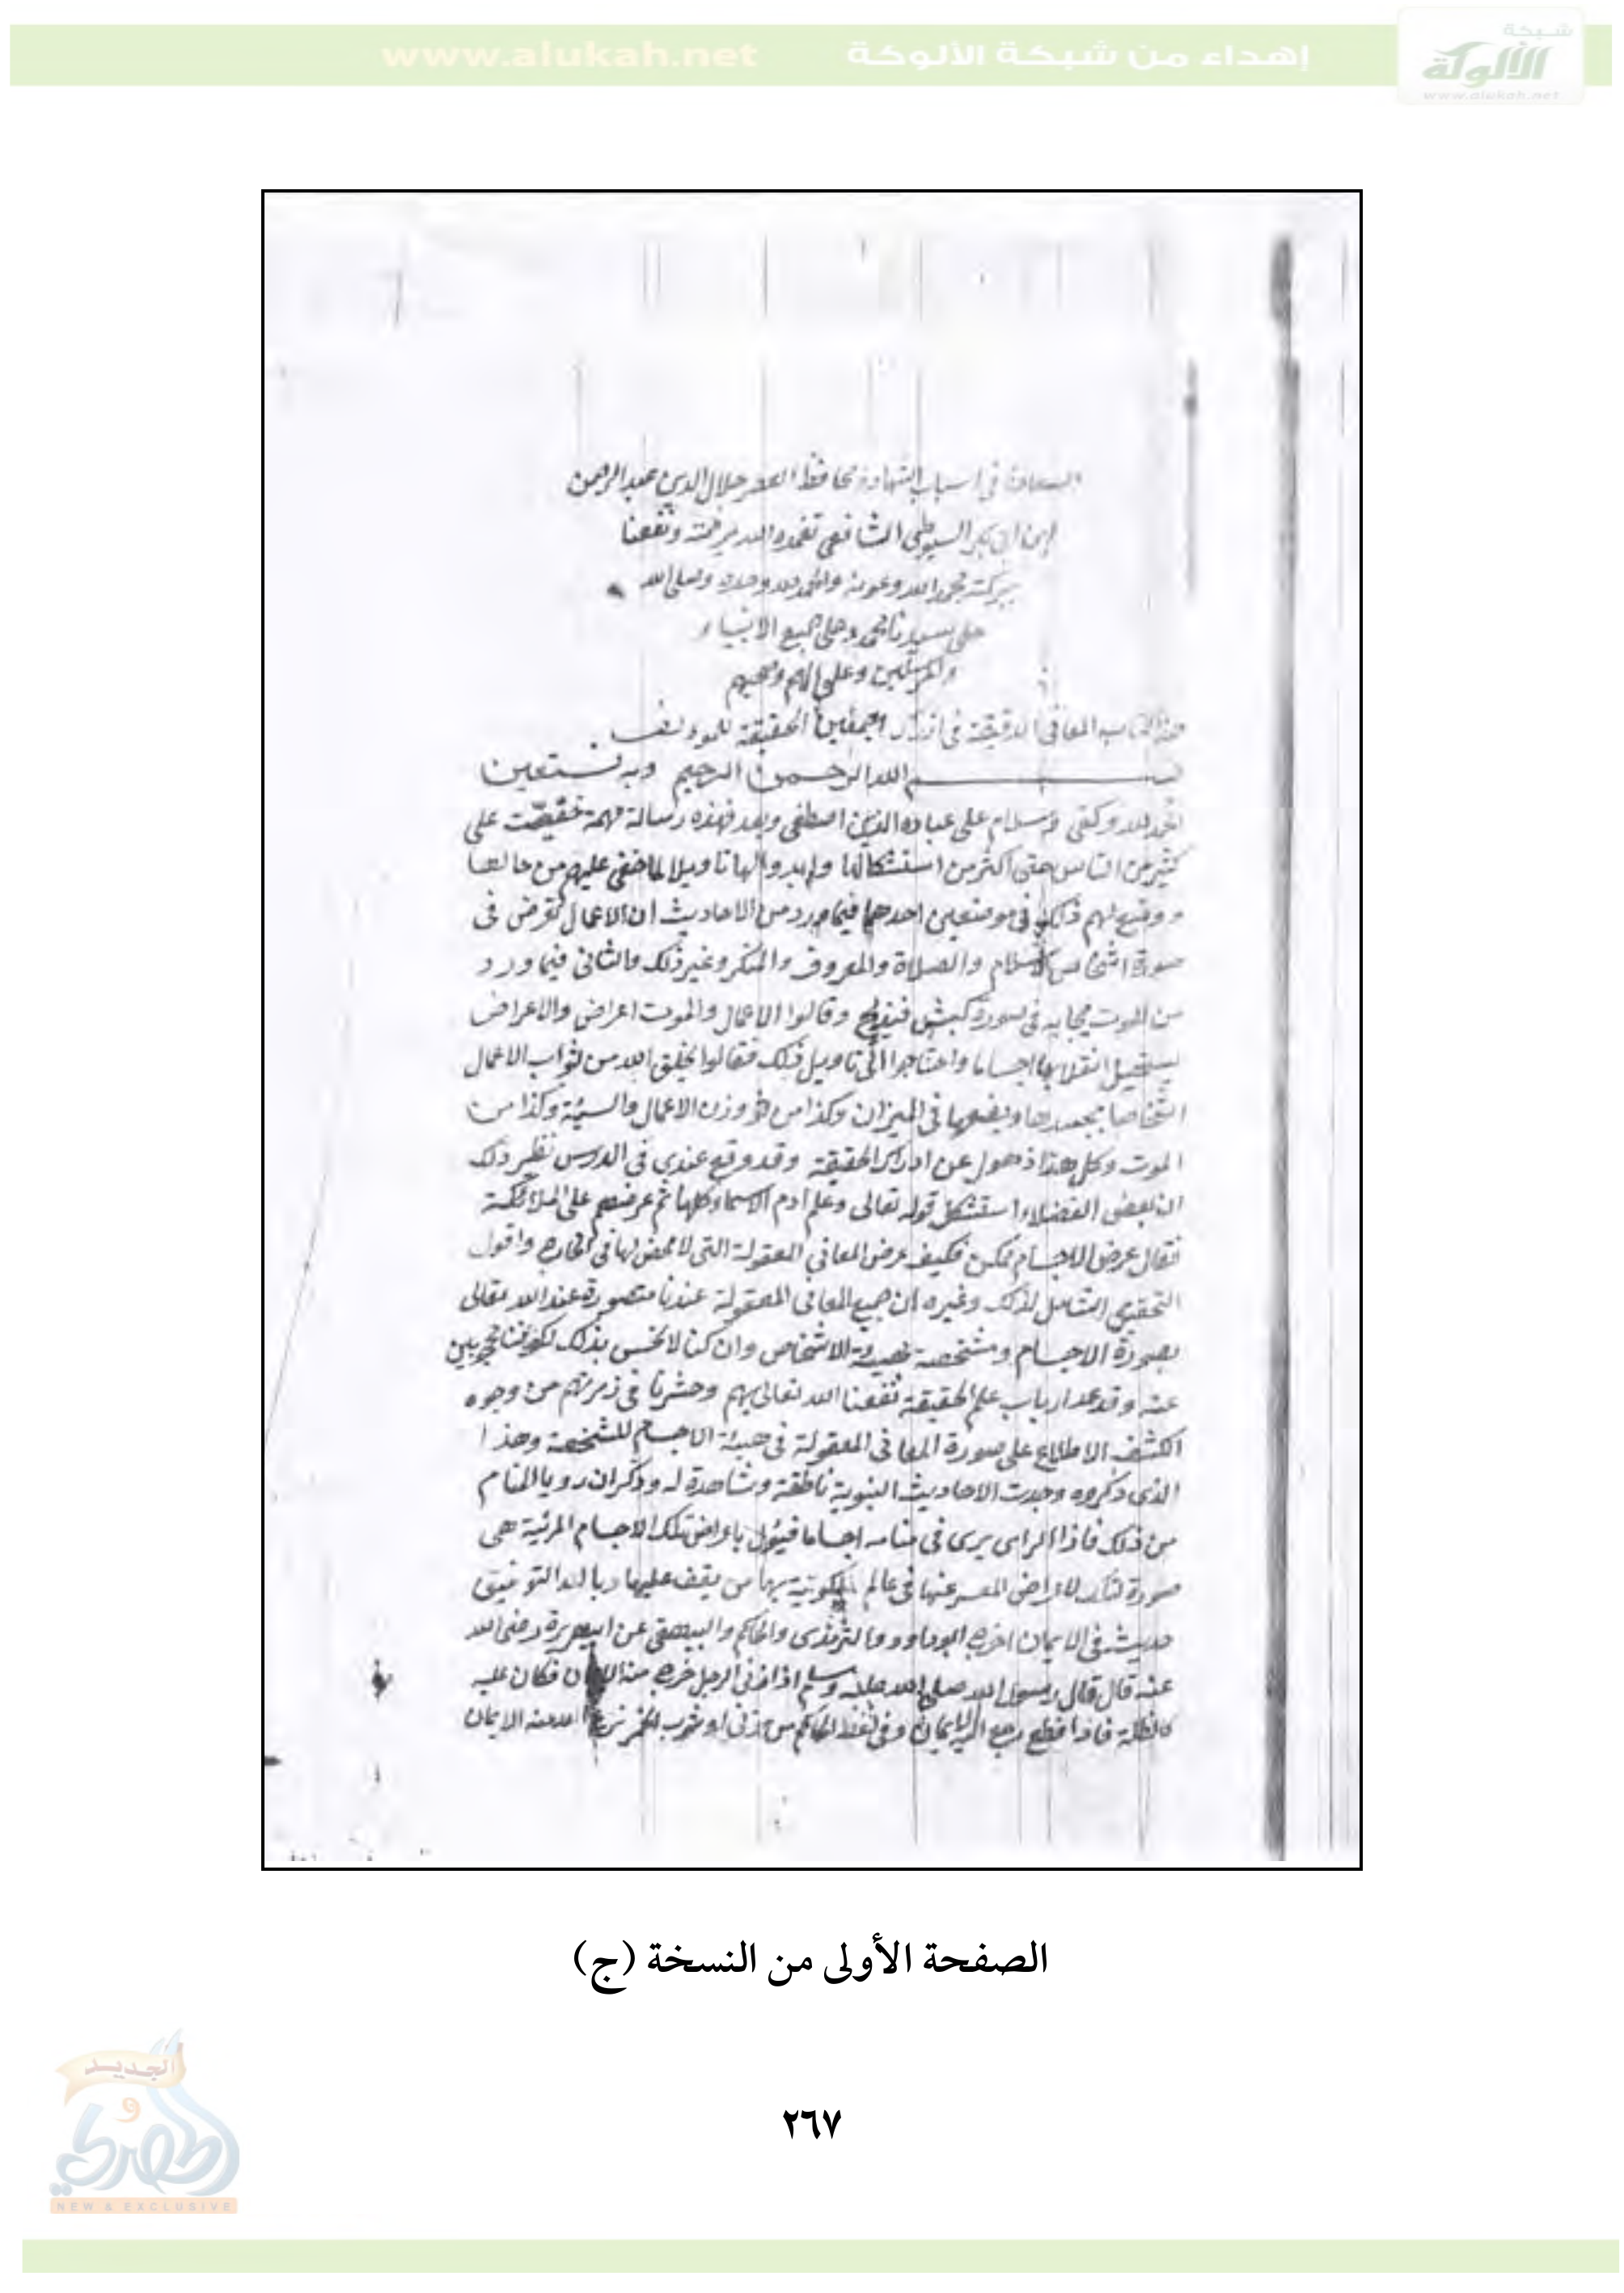 شبكة
الألوكة
www.alukah.net
إهداء من شبكة الألوكة www.alukah.net
السعادة في اسباب الشهادة لحافظ العصر جلال الدين عبد الرحمن
ابن ابي بكر السيوطي الشافعي تغمده الله برحمته ونفعنا
ببركته بحمد الله وعونه والحمد لله وحده وصلى الله
على سيدنا محمد وعلى جميع الانبياء
والمرسلين وعلى الهم وصحبهم
هذا كتاب المعاني الدقيقة في ادراك الحقيقة للمؤلف
بسم الله الرحمن الرحيم وبه نستعين
الحمد لله وكفى وسلام على عباده الذين اصطفى وبعد فهذه رسالة مهمة على
كثير من الناس حتى اكثر من استشكالها وابدوا لها تاويلا لما خفي عليهم من حالها
ووقع لهم ذلك في موضعين احدهما فيما ورد من الاحاديث ان الاعمال تعرض في
صورة الاسلام والصلاة والمعروف والمنكر وغير ذلك والثاني فيما ورد
من الموت يجاء به في صورة كبش فيذبح وقالوا الاعمال والموت اعراض والاعراض
يستحيل انقلابها اجساما واحتاجوا الى تاويل ذلك فقالوا يخلق الله من ثواب الاعمال
اشخاصا ويضعها في الميزان وكذا من وزن الاعمال والسيئة وكذا من
الموت وكل هذا ذهول عن ادراك الحقيقة وقد وقع عندي في الدرس نظير ذلك
ان بعض الفضلاء استشكل قوله تعالى وعلم ادم الاسماء كلها ثم عرضهم على الملائكة
فقال عرض الاجسام ممكن فكيف عرض المعاني المعقولة التي لها في الخارج واقول
التحقيق الشامل لذلك وغيره ان جميع المعاني المعقولة عندنا متصورة عند الله تعالى
بصورة الاجسام ومشخصة الاشخاص وان كنا لا نحس بذلك لكوننا محجوبين
عنه وقد عد ارباب علم الحقيقة نفعنا الله تعالى بهم وحشرنا في زمرتهم من وجوه
الكشف الاطلاع على صورة المعاني المعقولة في هيئة الاجسام المشخصة وهذا
الذي ذكروه وجدت الاحاديث النبوية ناطقة وشاهدة له وذكر ان رويا المنام
من ذلك فاذا الراى يرى في منامه اجساما فيئول باعراض تلك الاجسام المرئية هي
صورة لتلك الاعراض المعبر عنها في عالم من يقف عليها وبالله التوفيق
حديث في الايمان اخرج ابو داوود والترمذي والحاكم والبيهقي عن ابي هريرة رضى الله
عنه قال قال رسول الله صلى الله عليه وسلم اذا زنى الرجل خرج منه الايمان فكان عليه
كالظلة فاذا قطع رجع اليه الايمان وفي لفظ الحاكم من زنى او شرب الخمر نزع الله منه الايمان
الصفحة الأولى من النسخة (ج)
٢٦٧
الجديد
و
الحصري
NEW & EXCLUSIVE